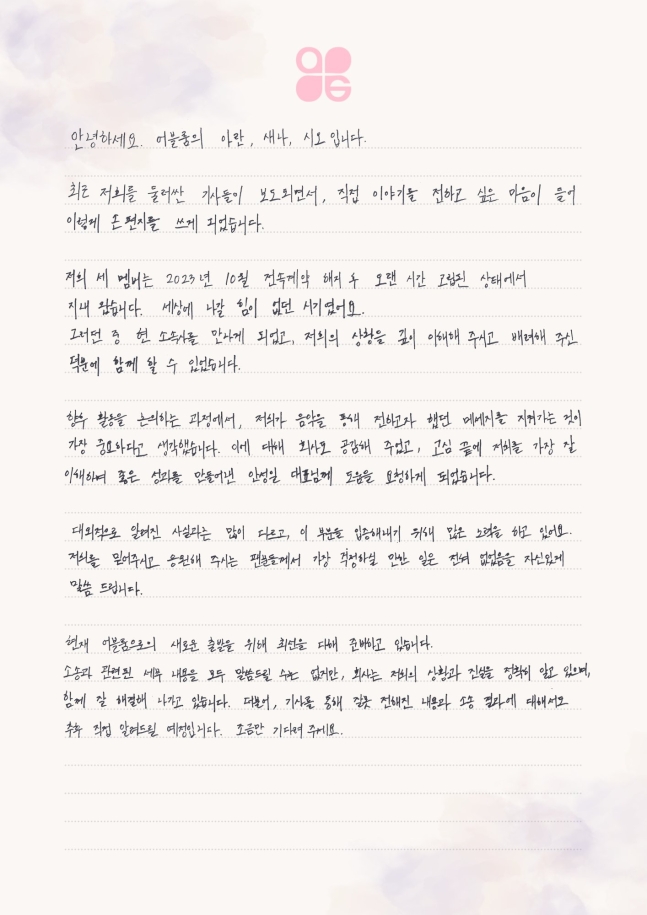 안녕하세요. 어블룸의 아란, 새나, 시오입니다.
최근 저희를 둘러싼 기사들이 보도되면서, 직접 이야기를 전하고 싶은 마음이 들어
이렇게 손편지를 쓰게 되었습니다.
저희 세 멤버는 2023년 10월 전속계약 해지 후 오랜 시간 고립된 상태에서
지내 왔습니다. 세상에 나갈 힘이 없던 시기였어요.
그러던 중 현 소속사를 만나게 되었고, 저희의 상황을 깊이 이해해 주시고 배려해 주신
덕분에 함께 할 수 있었습니다.
향후 활동을 논의하는 과정에서, 저희가 음악을 통해 전하고자 했던 메세지를 지켜가는 것이
가장 중요하다고 생각했습니다. 이에 대해 회사도 공감해 주었고, 고심 끝에 저희를 가장 잘
이해하며 좋은 성과를 만들어낸 안성일 대표님께 도움을 요청하게 되었습니다.
대외적으로 알려진 사실과는 많이 다르고, 이 부분을 입증해내기 위해 많은 노력을 하고 있어요.
저희를 믿어주시고 응원해 주시는 팬분들께서 가장 걱정하실 만한 일은 전혀 없었음을 자신있게
말씀 드립니다.
현재 어블룸으로의 새로운 출발을 위해 최선을 다해 준비하고 있습니다.
소송과 관련된 세부 내용을 모두 말씀드릴 수는 없지만, 회사는 저희의 상황과 진실을 정확히 알고 있으며,
함께 잘 해결해 나가고 있습니다. 더불어, 기사를 통해 잘못 전해진 내용과 소송 결과에 대해서도
추후 직접 알려드릴 예정입니다. 조금만 기다려 주세요.